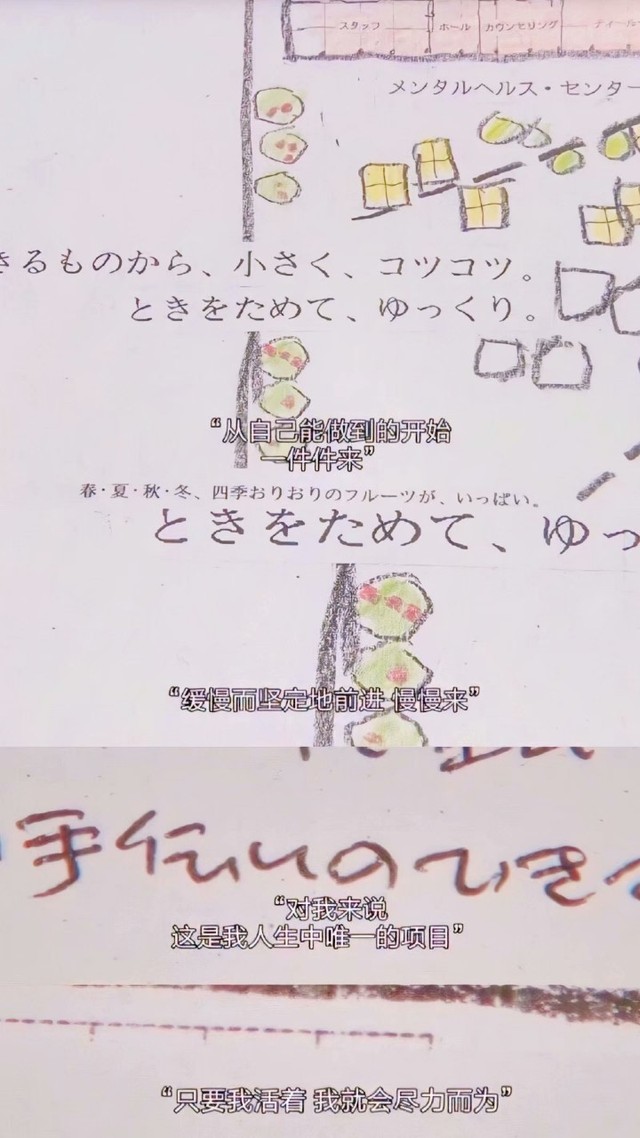 スタッフ ホール カウンセリング ティールー
メンタルヘルス・センター
きるものから、小さく、コツコツ。
ときをためて、ゆっくり。
“从自己能做到的开始
一件件来”
春・夏・秋・冬、四季おりおりのフルーツが、いっぱい。
ときをためて、ゆっ
“缓慢而坚定地前进 慢慢来”
手伝いのできる
“对我来说
这是我人生中唯一的项目”
“只要我活着 我就会尽力而为”